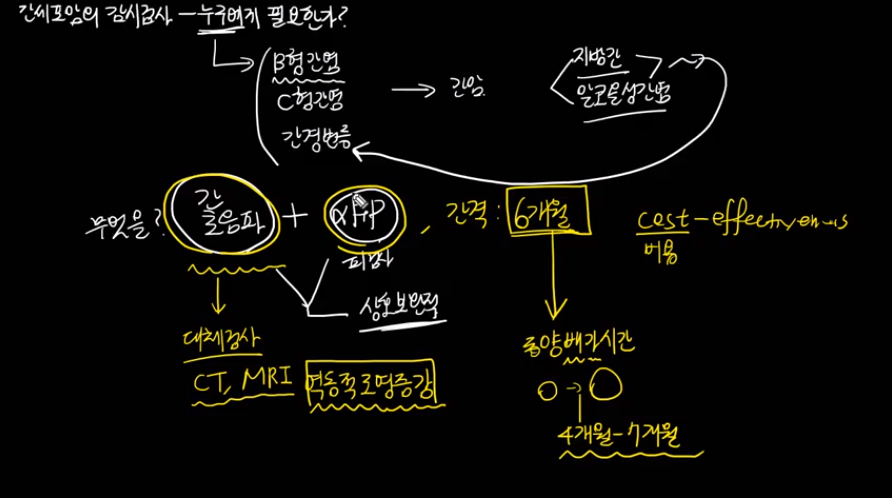 간세포암의 감시검사 - 누구에게 필요한가?
B형간염
C형간염
간경변증
→ 간암
지방간
알코올성간염
무엇을? 간초음파 + αFP, 간격: 6개월
피검사
상호보완적
cost-effectiveness
비용
대체검사
CT, MRI 역동적조영증강
종양배가시간
4개월-7개월